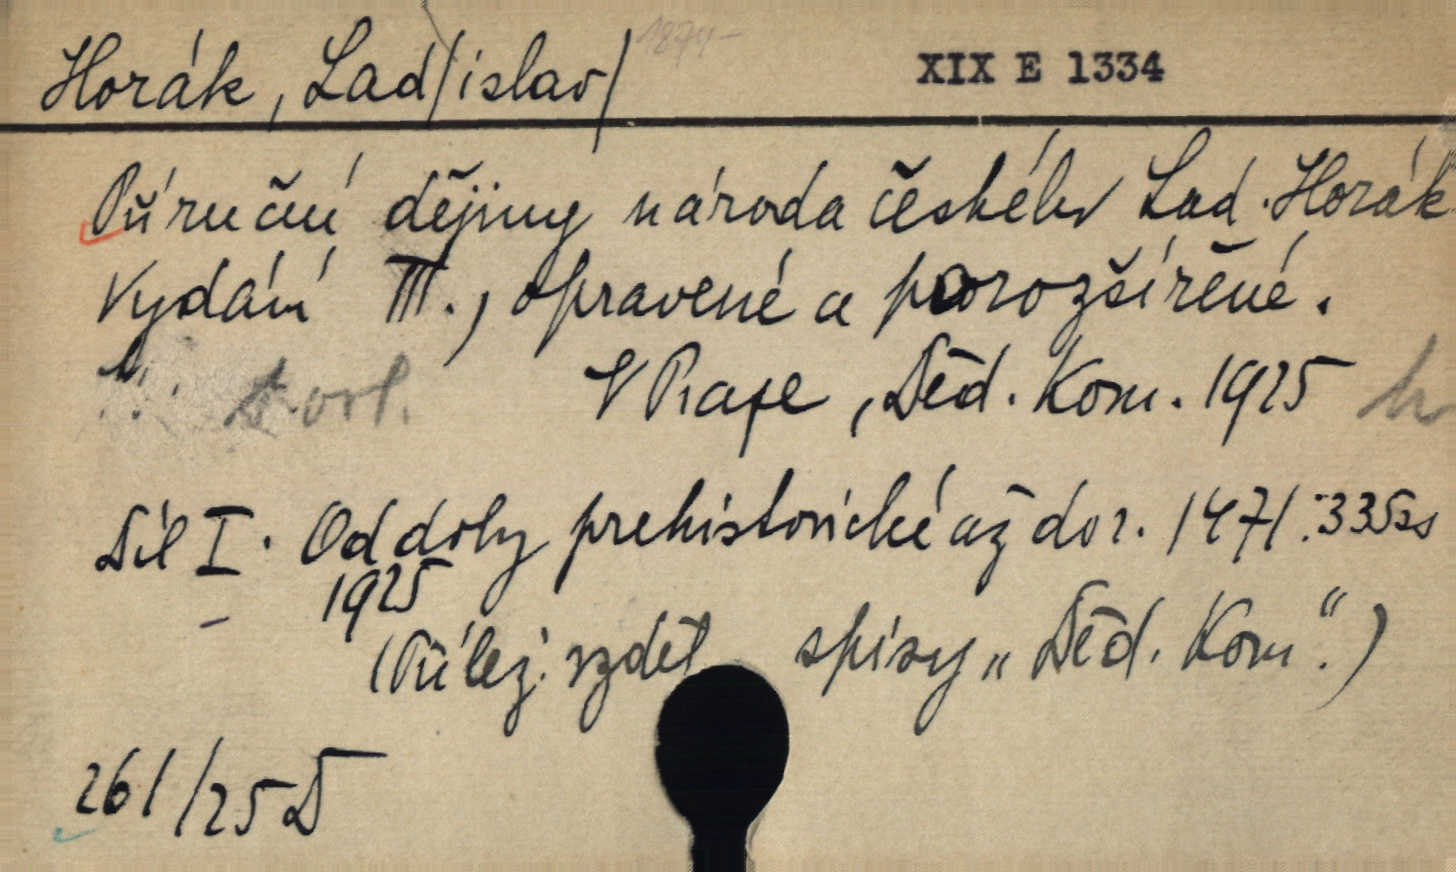 Horák, Lad/islav/ 1874- XIX E 1334
Příruční dějiny národa českého Lad. Horák
Vydání III., opravené a porozšířené.
V Praze, Děd. Kom. 1925
Díl I. Od doby prehistorické až do r. 1471. 335 ss
1925
(Příl. vzděl spisy „Děd. Kom“.)
261/25 D